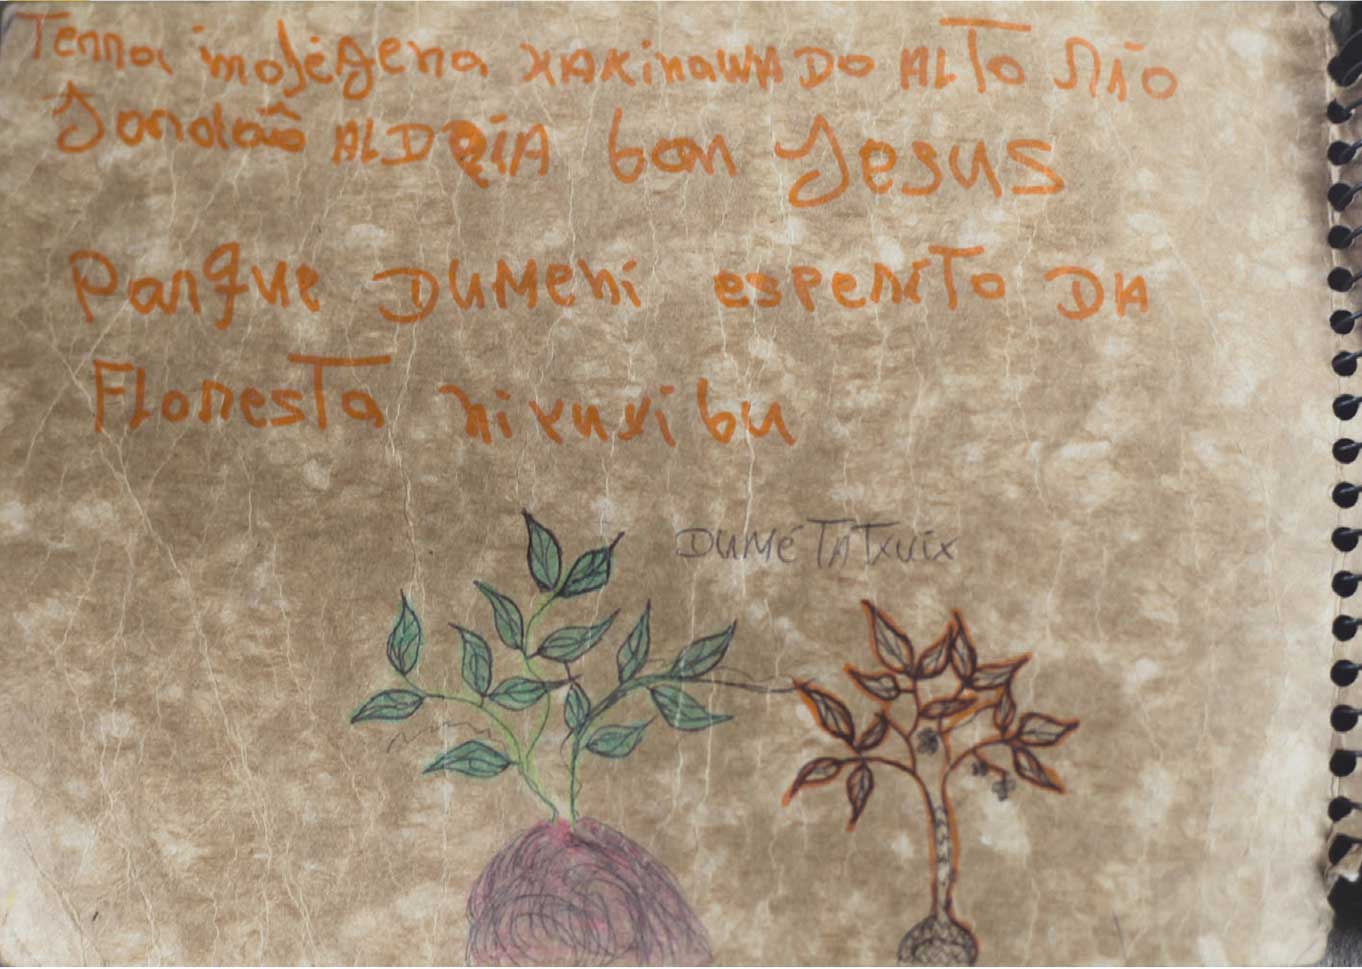 Terra indígena KAXinawA DO ALTO Rio
Jordão ALDEIA bon Jesus
Parque DUMeni esperito DA
Floresta nixuxibu
DUMÉ TATXUIX